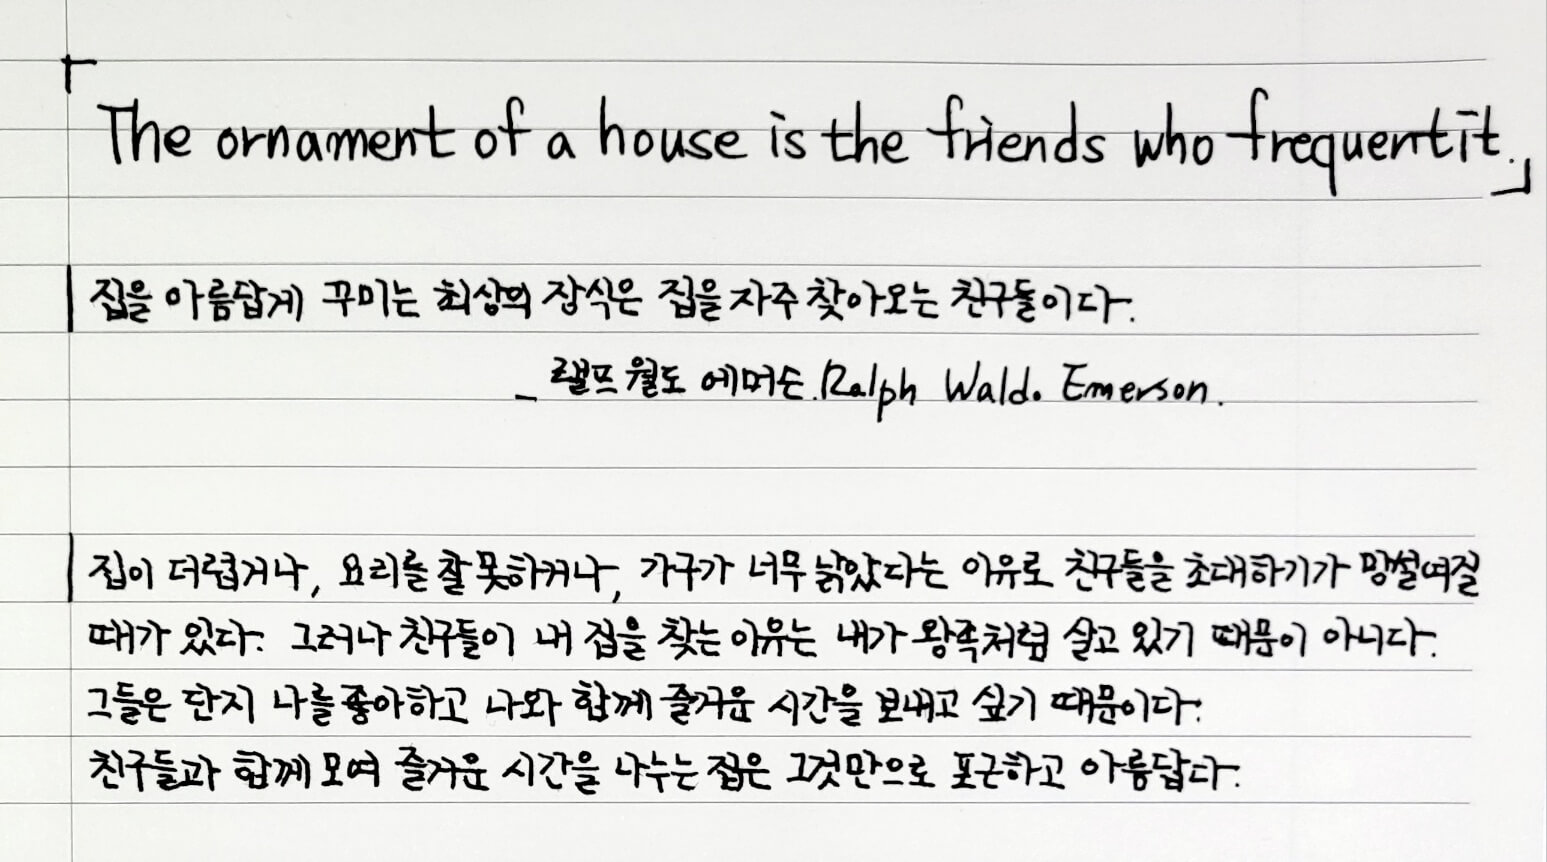 「The ornament of a house is the friends who frequent it.」
집을 아름답게 꾸미는 최상의 장식은 집을 자주 찾아오는 친구들이다.
_ 랠프 월도 에머슨. Ralph Waldo Emerson.
집이 더럽거나, 요리를 잘 못하거나, 가구가 너무 낡았다는 이유로 친구들을 초대하기가 망설여질
때가 있다. 그러나 친구들이 내 집을 찾는 이유는 내가 왕족처럼 살고 있기 때문이 아니다.
그들은 단지 나를 좋아하고 나와 함께 즐거운 시간을 보내고 싶기 때문이다.
친구들과 함께 모여 즐거운 시간을 나누는 집은 그것만으로 포근하고 아름답다.